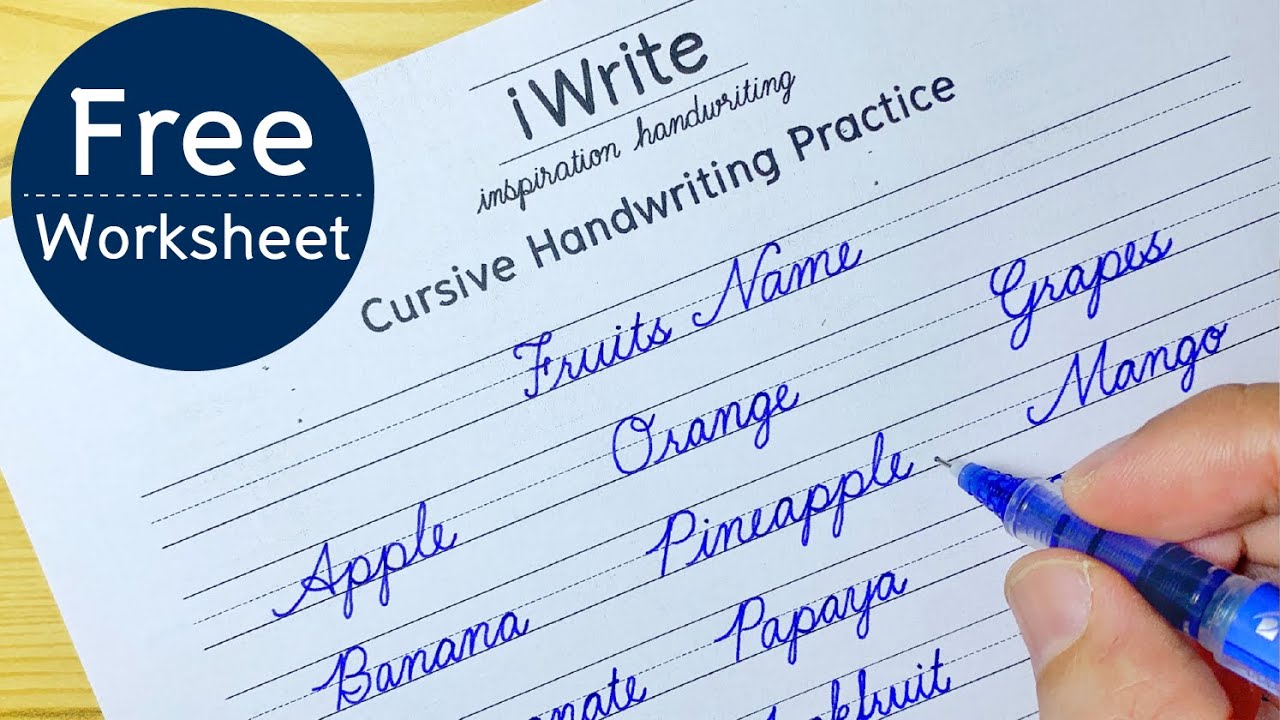 Free
Worksheet
iWrite
inspiration handwriting
Cursive Handwriting Practice
Fruits Name
Apple Orange Grapes
Banana Pineapple Mango
Papaya